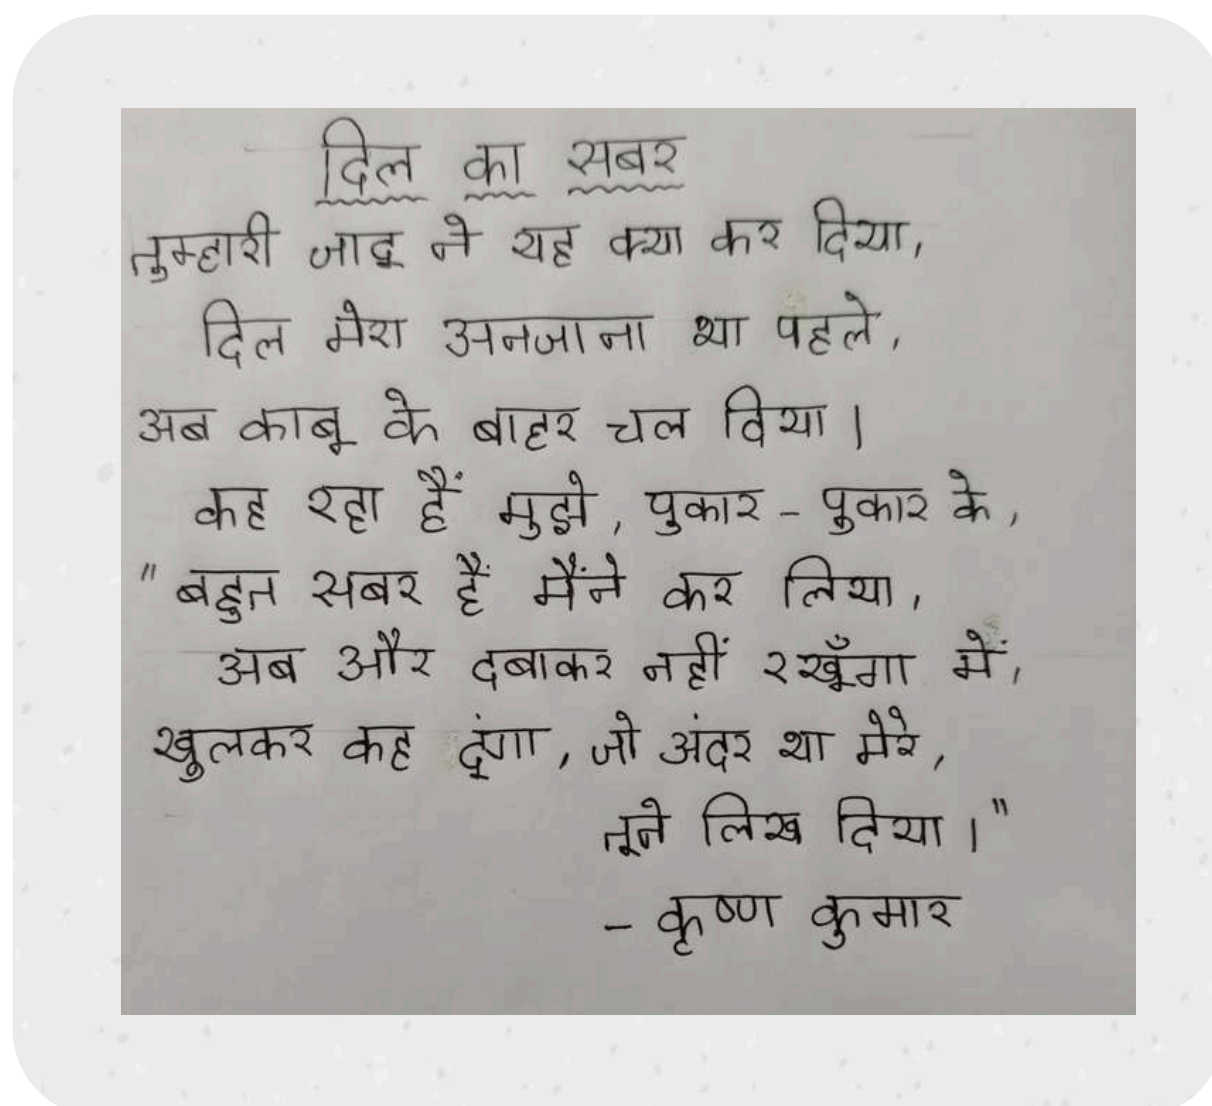 दिल का सबर
तुम्हारी जादू ने यह क्या कर दिया,
दिल मेरा अनजाना था पहले,
अब काबू के बाहर चल दिया।
कह रहा हैं मुझे, पुकार - पुकार के,
"बहुत सबर हैं मैंने कर लिया,
अब और दबाकर नहीं रखूँगा में,
खुलकर कह दूंगा, जो अंदर था मेरे,
तूने लिख दिया।"
- कृष्ण कुमार